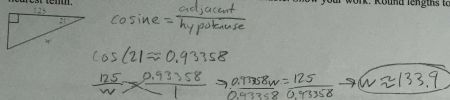 nearest tenth. show your work. Round lengths to
125
21
w
cosine = adjacent / hypotenuse
cos (21 ≈ 0.93358
125 / w 0.93358 / 1 → 0.93358w / 0.93358 = 125 / 0.93358 → w ≈ 133.9